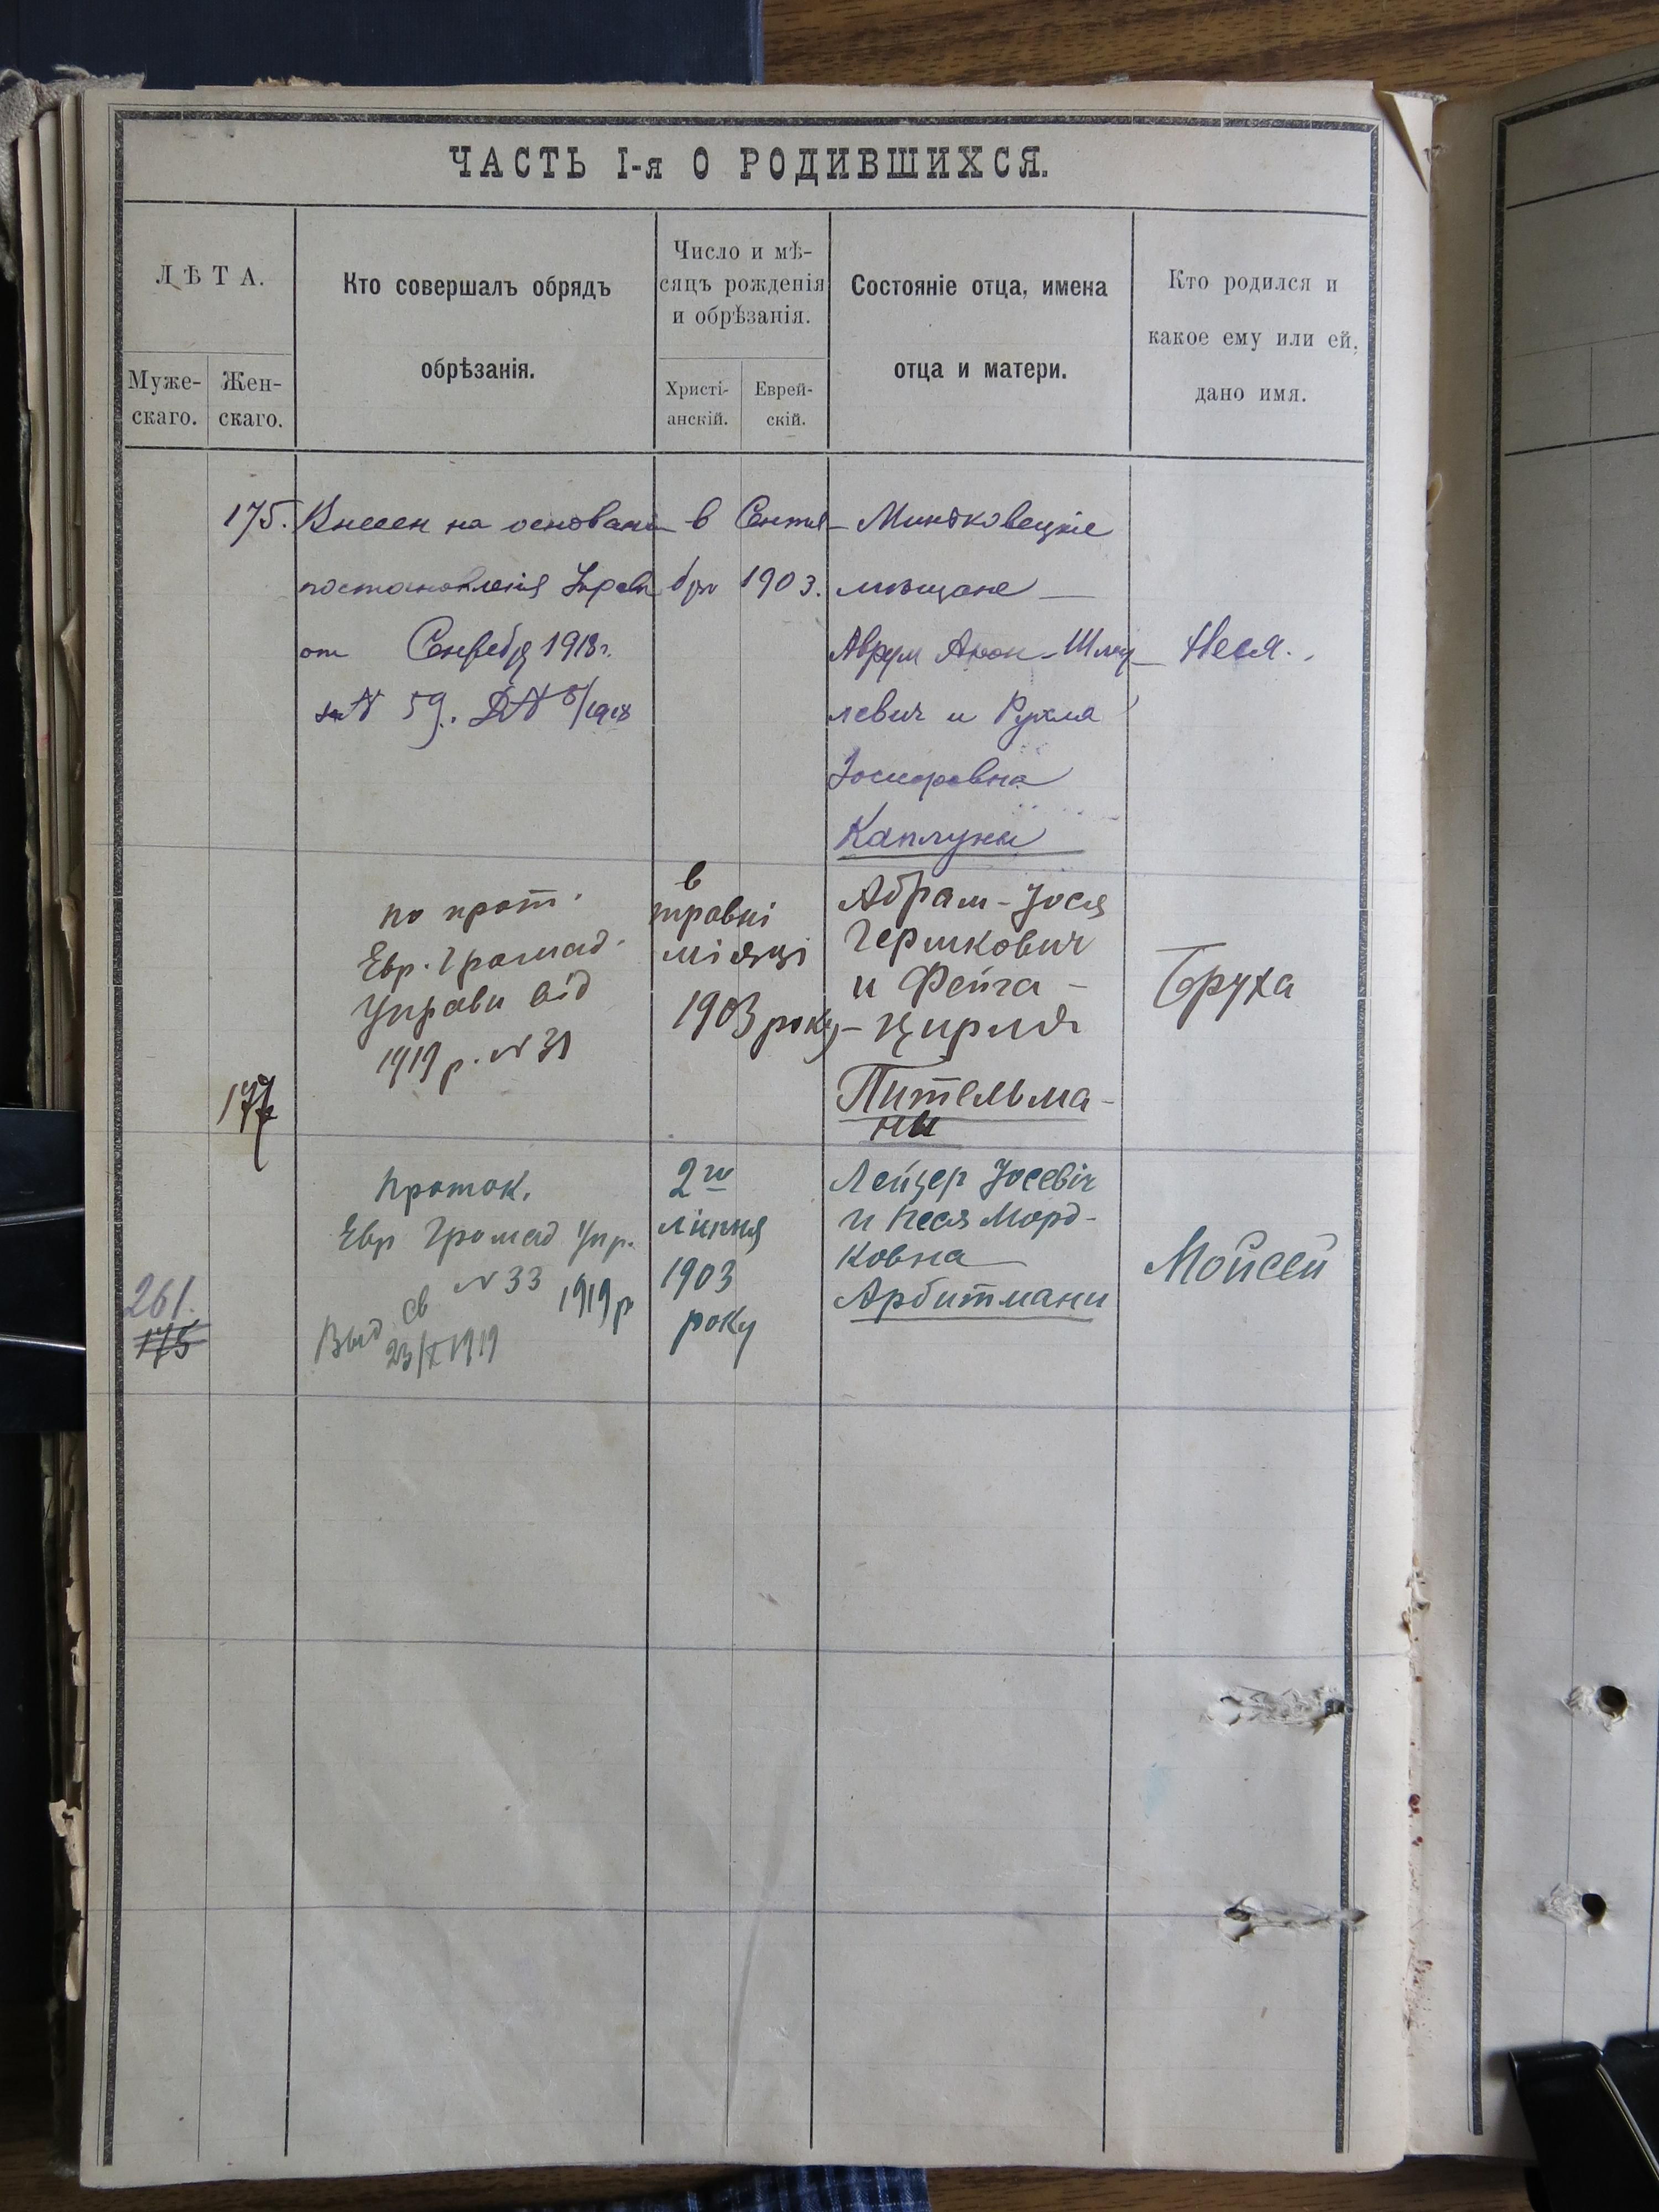 ЧАСТЬ I-я О РОДИВШИХСЯ.
ЛѢТА.
Муже-
скаго.
Жен-
скаго.
Кто совершалъ обрядъ
обрѣзанія.
Число и мѣ-
сяцъ рожденія
и обрѣзанія.
Христі-
анскій.
Еврей-
скій.
Состояніе отца, имена
отца и матери.
Кто родился и
какое ему или ей,
дано имя.
175.
Внесен на основани
постановленія
от 1918 г.
№ 59. 1918
в Сентя-
бря 1903.
Миньковецкіе
мѣщане —
Аврум Арон-Шму-
левич и Рухля
Іосифовна
Каплуны
Неся.
177
по прот.
Евр. Громад.
Управи від
1919 р. № 31
в
травні
місяці
1903 року
Абрам-Йося
Гершкович
и Фейга-
Цирля
Пительма-
ны
Бруха
261.
175
Проток.
Евр Громад Упр.
№ 33 1919 р
Выд св
23/X 1919
2го
липня
1903
року
Лейзер Йосевіч
и Песя Морд-
ковна
Арбитмани
Мойсей